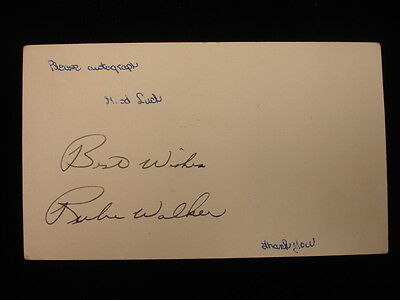 Please autograph
Good Luck
Best Wishes
Rube Walker
Thank You